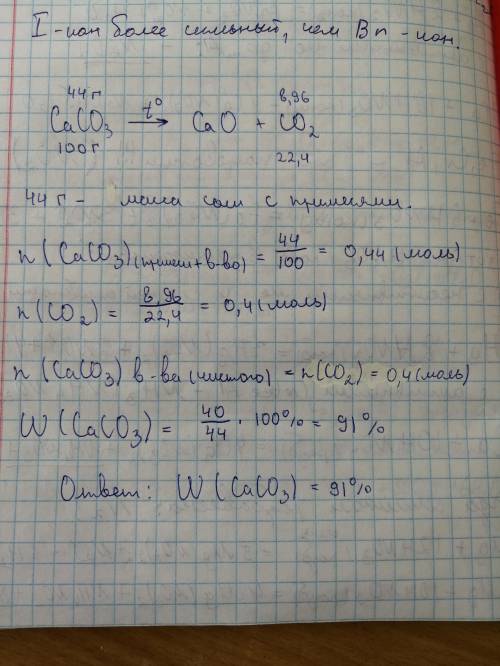 I-ион более сильный, чем Br-ион.
44 г 8,96
CaCO₃ t°→ CaO + CO₂
100 г 22,4
44 г - масса соли с примесями.
n(CaCO₃)(примеси+в-во) = 44/100 = 0,44 (моль)
n(CO₂) = 8,96/22,4 = 0,4 (моль)
n(CaCO₃) в-ва (чистого) = n(CO₂) = 0,4 (моль)
W(CaCO₃) = 40/44 · 100% = 91%
Ответ: W(CaCO₃) = 91%